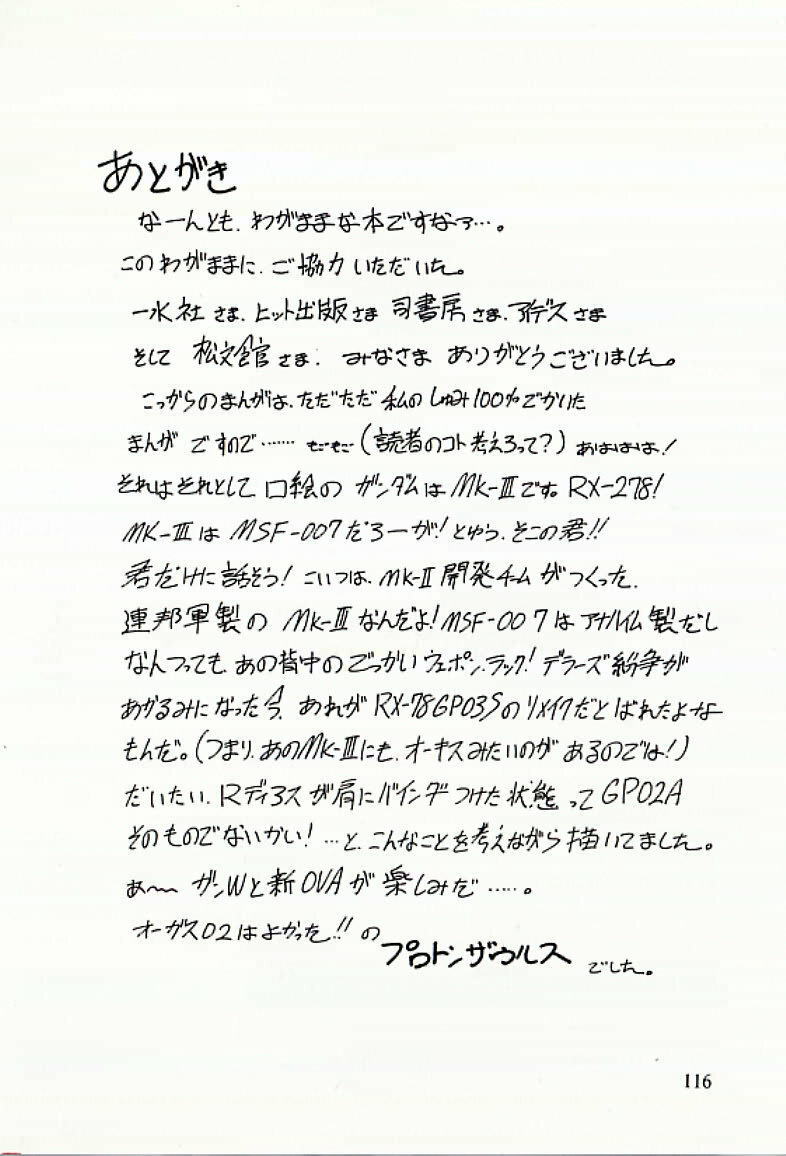 あとがき
なーんとも、わがままな本ですなァ…。
このわがままに、ご協力いただいた。
一水社さま、ヒット出版さま 司書房さま、アイデスさま
そして 松文館さま、みなさま ありがとうございました。
こっからのまんがは、ただただ私のしゅみ100%でかいた
まんが ですので…… もごもご(読者のコト考えろって?) あははは!
それはそれとして 口絵の ガンダムはMK-Ⅲです。RX-278!
MK-Ⅲは MSF-007だろーが!とゆう、そこの君!!
君だけに話そう!こいつは、MK-Ⅱ開発チームがつくった、
連邦軍製の MK-Ⅲなんだよ!MSF-007はアナハイム製だし
なんつっても、あの背中のごっかいウェポン、ラック!デラーズ紛争が
あかるみになった今、あれがRX-78GP03Sのリメイクだとばれたよーな
もんだ。(つまり、あのMK-Ⅲにも、オーキスみたいのがあるのでは!)
だいたい、Rディアスが肩にバインダつけた状態ってGP02A
そのものでないかい!…と、こんなことを考えながら描いてました。
あ〜〜 ガンWと新OVAが楽しみだ……。
オーガス02はよかった!!の
プロトンザウルス でした。
116